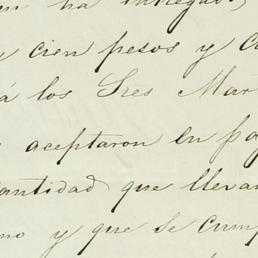 ha entregado,
y cien pesos y c
á los Sres Mar
aceptaron en pag
antidad que llevan
mo y que se cump